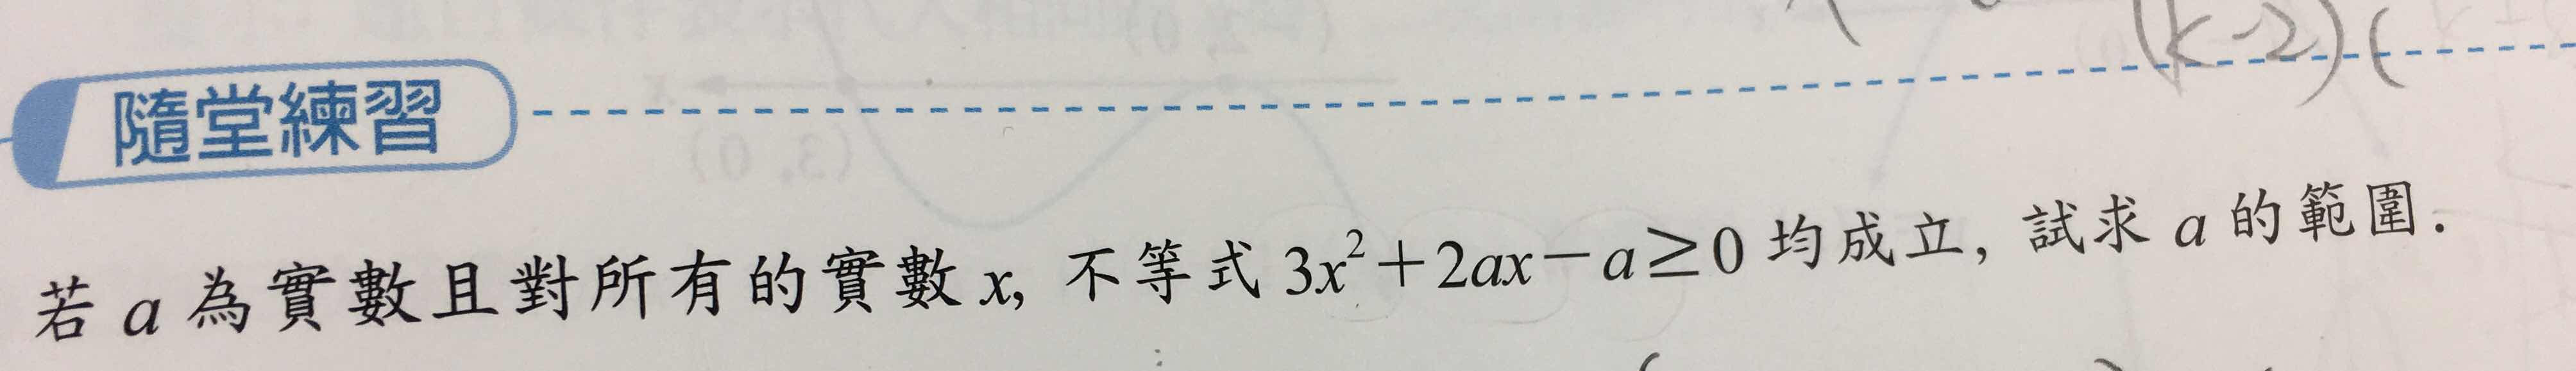 (k-2)(
隨堂練習
若 a 為實數且對所有的實數 x, 不等式 3x²+2ax-a≥0 均成立, 試求 a 的範圍.